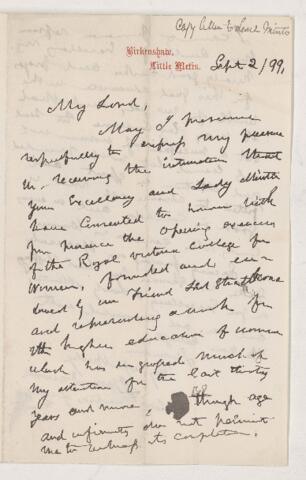 Copy letter to Lord Minto
Birkenshaw,
Little Metis.
Sept 2/99,
My Lord,
May I presume
respectfully to express my pleasure
in receiving the intimation that
your Excellency and Lady Minto
have consented to honour with
your presence the opening exercises
of the Royal Victoria College for
Women, founded and en-
dowed by our friend Lord Strathcona
and representing a work for
the higher education of women
which has engrossed much of
my attention for the last thirty
years and more, though age
and infirmity do not permit
me to witness its completion.